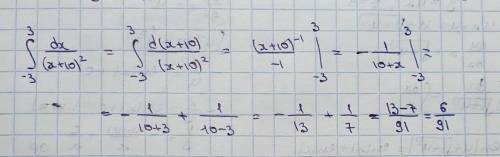 ∫_{-3}^{3} dx/(x+10)² = ∫_{-3}^{3} d(x+10)/(x+10)² = (x+10)⁻¹/-1 |_{-3}^{3} = - 1/(10+x) |_{-3}^{3} =
= - 1/(10+3) + 1/(10-3) = - 1/13 + 1/7 = (13-7)/91 = 6/91